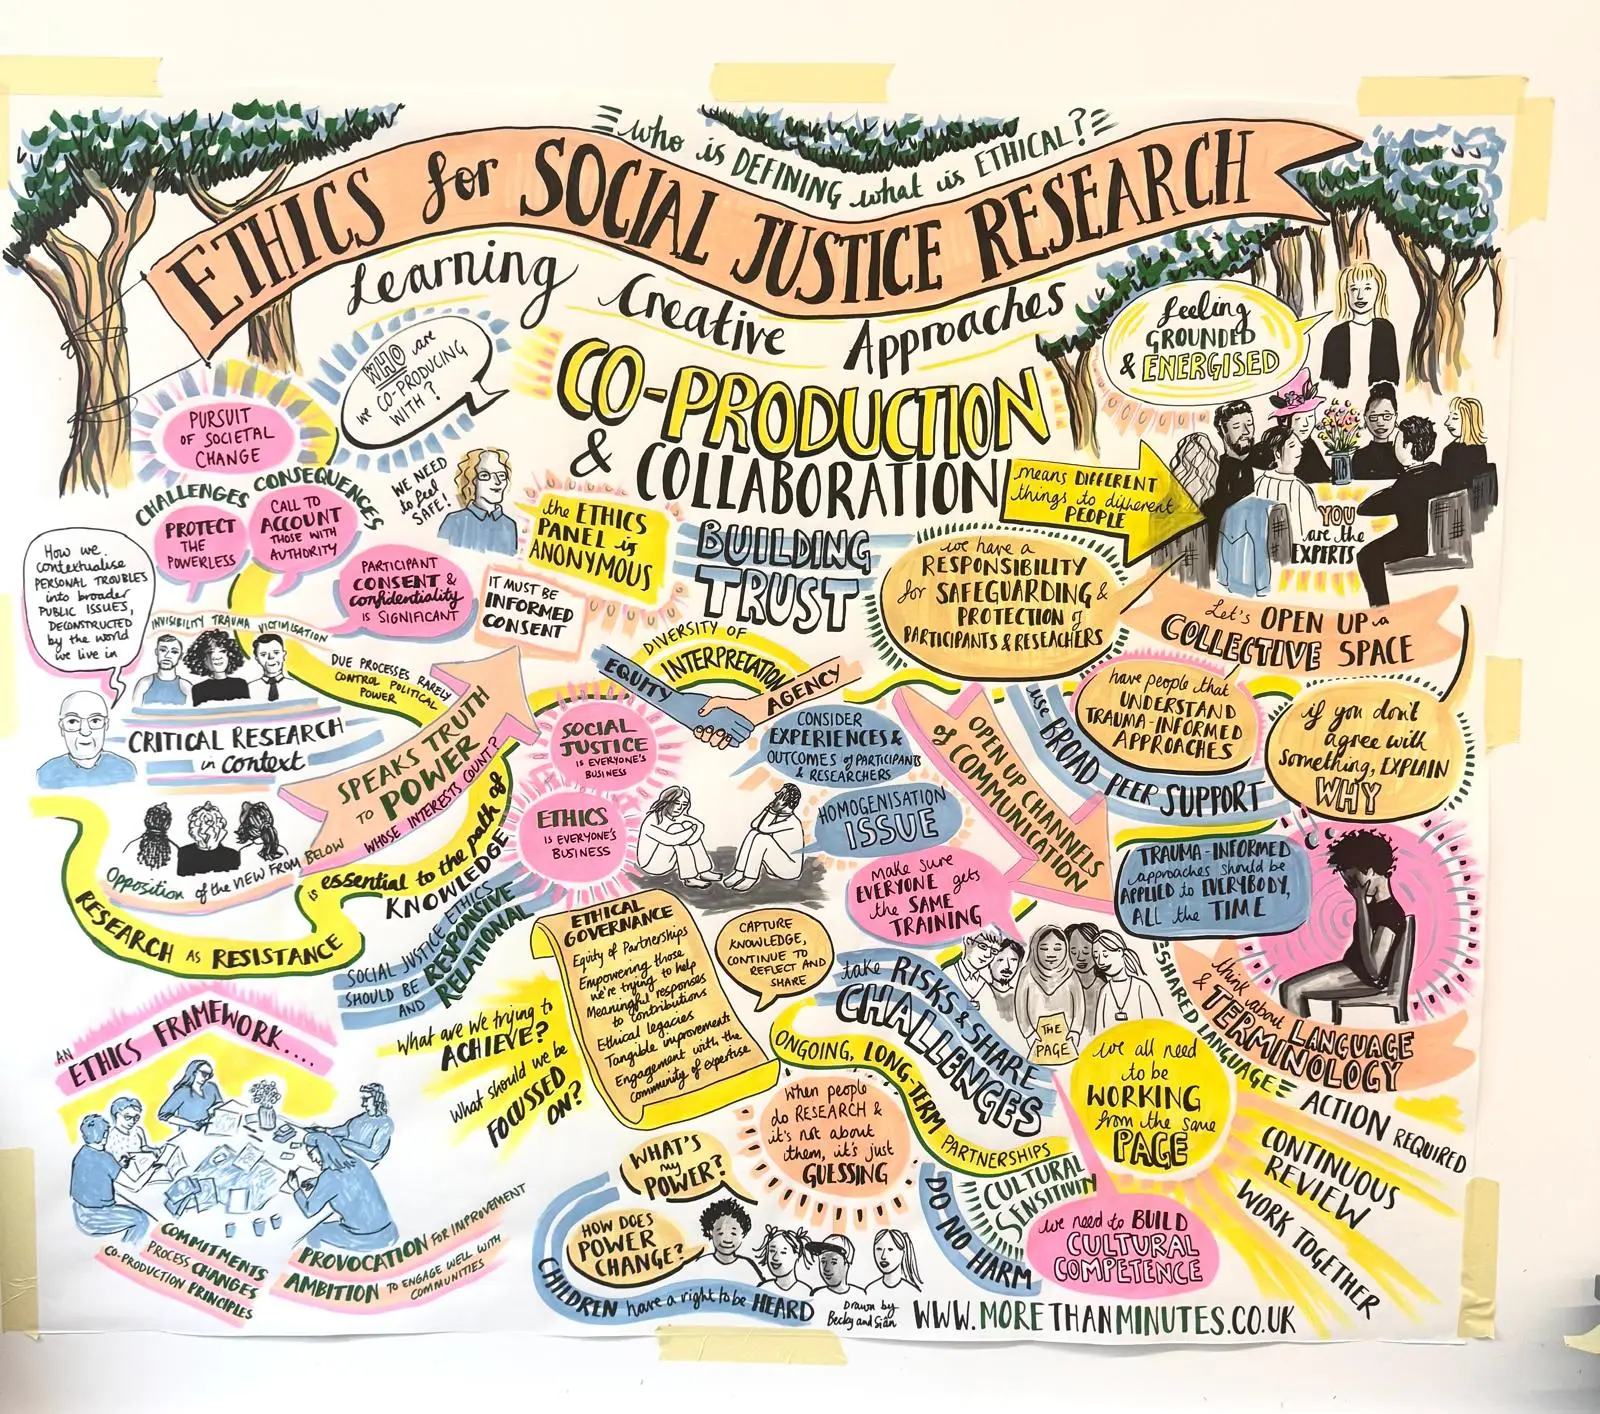 who is DEFINING what is ETHICAL?
ETHICS for SOCIAL JUSTICE RESEARCH
Learning Creative Approaches
feeling
GROUNDED
& ENERGISED
WHO are
we CO-PRODUCING
WITH?
CO-PRODUCTION
& COLLABORATION
means DIFFERENT
things to different
PEOPLE
YOU
are the
EXPERTS
PURSUIT
OF SOCIETAL
CHANGE
CHALLENGES
CONSEQUENCES
PROTECT
THE
POWERLESS
CALL TO
ACCOUNT
THOSE WITH
AUTHORITY
WE NEED
to feel
SAFE!
the ETHICS
PANEL is
ANONYMOUS
BUILDING
TRUST
we have a
RESPONSIBILITY
for SAFEGUARDING &
PROTECTION of
PARTICIPANTS & RESEACHERS
Let's OPEN UP a
COLLECTIVE SPACE
How we
contextualise
PERSONAL TROUBLES
into broader
PUBLIC ISSUES,
DECONSTRUCTED
by the world
we live in
PARTICIPANT
CONSENT &
confidentiality
IS SIGNIFICANT
IT MUST BE
INFORMED
CONSENT
INVISIBILITY TRAUMA VICTIMISATION
DUE PROCESSES RARELY
CONTROL POLITICAL
POWER
DIVERSITY OF
INTERPRETATION
EQUITY
AGENCY
CRITICAL RESEARCH
in context
SPEAKS TRUTH
TO POWER
WHOSE INTERESTS COUNT?
Opposition of the VIEW FROM BELOW
RESEARCH AS RESISTANCE
is essential to the path of
KNOWLEDGE
SOCIAL
JUSTICE
IS EVERYONE'S
BUSINESS
ETHICS
IS EVERYONE'S
BUSINESS
CONSIDER
EXPERIENCES &
OUTCOMES of PARTICIPANTS
& RESEARCHERS
HOMOGENISATION
ISSUE
OPEN UP CHANNELS
of COMMUNICATION
use BROAD PEER SUPPORT
have people that
UNDERSTAND
TRAUMA-INFORMED
APPROACHES
if you don't
agree with
something, EXPLAIN
WHY
TRAUMA-INFORMED
approaches should be
APPLIED to EVERYBODY,
ALL the TIME
make sure
EVERYONE gets
the SAME
TRAINING
SOCIAL JUSTICE ETHICS
SHOULD BE RESPONSIVE
AND RELATIONAL
ETHICAL
GOVERNANCE
Equity of Partnerships
Empowering those
we're trying to help
Meaningful responses
to contributions
Ethical legacies
Tangible improvements
Engagement with the
community of expertise
CAPTURE
KNOWLEDGE,
CONTINUE TO
REFLECT AND
SHARE
take RISKS & SHARE
CHALLENGES
THE
PAGE
SHARED LANGUAGE
think about LANGUAGE
& TERMINOLOGY
we all need
to be
WORKING
from the same
PAGE
ACTION REQUIRED
CONTINUOUS
REVIEW
WORK TOGETHER
AN ETHICS FRAMEWORK....
What are we trying to
ACHIEVE?
What should we be
FOCUSSED
ON?
ONGOING, LONG-TERM PARTNERSHIPS
When people
do RESEARCH &
it's not about
them, it's just
GUESSING
CULTURAL
SENSITIVITY
DO NO HARM
we need to BUILD
CULTURAL
COMPETENCE
COMMITMENTS
PROCESS CHANGES
CO-PRODUCTION PRINCIPLES
PROVOCATION FOR IMPROVEMENT
AMBITION TO ENGAGE WELL WITH
COMMUNITIES
WHAT'S
my
POWER?
HOW DOES
POWER
CHANGE?
CHILDREN have a right to be HEARD
Drawn by
Becky and Siân
WWW.MORETHANMINUTES.CO.UK